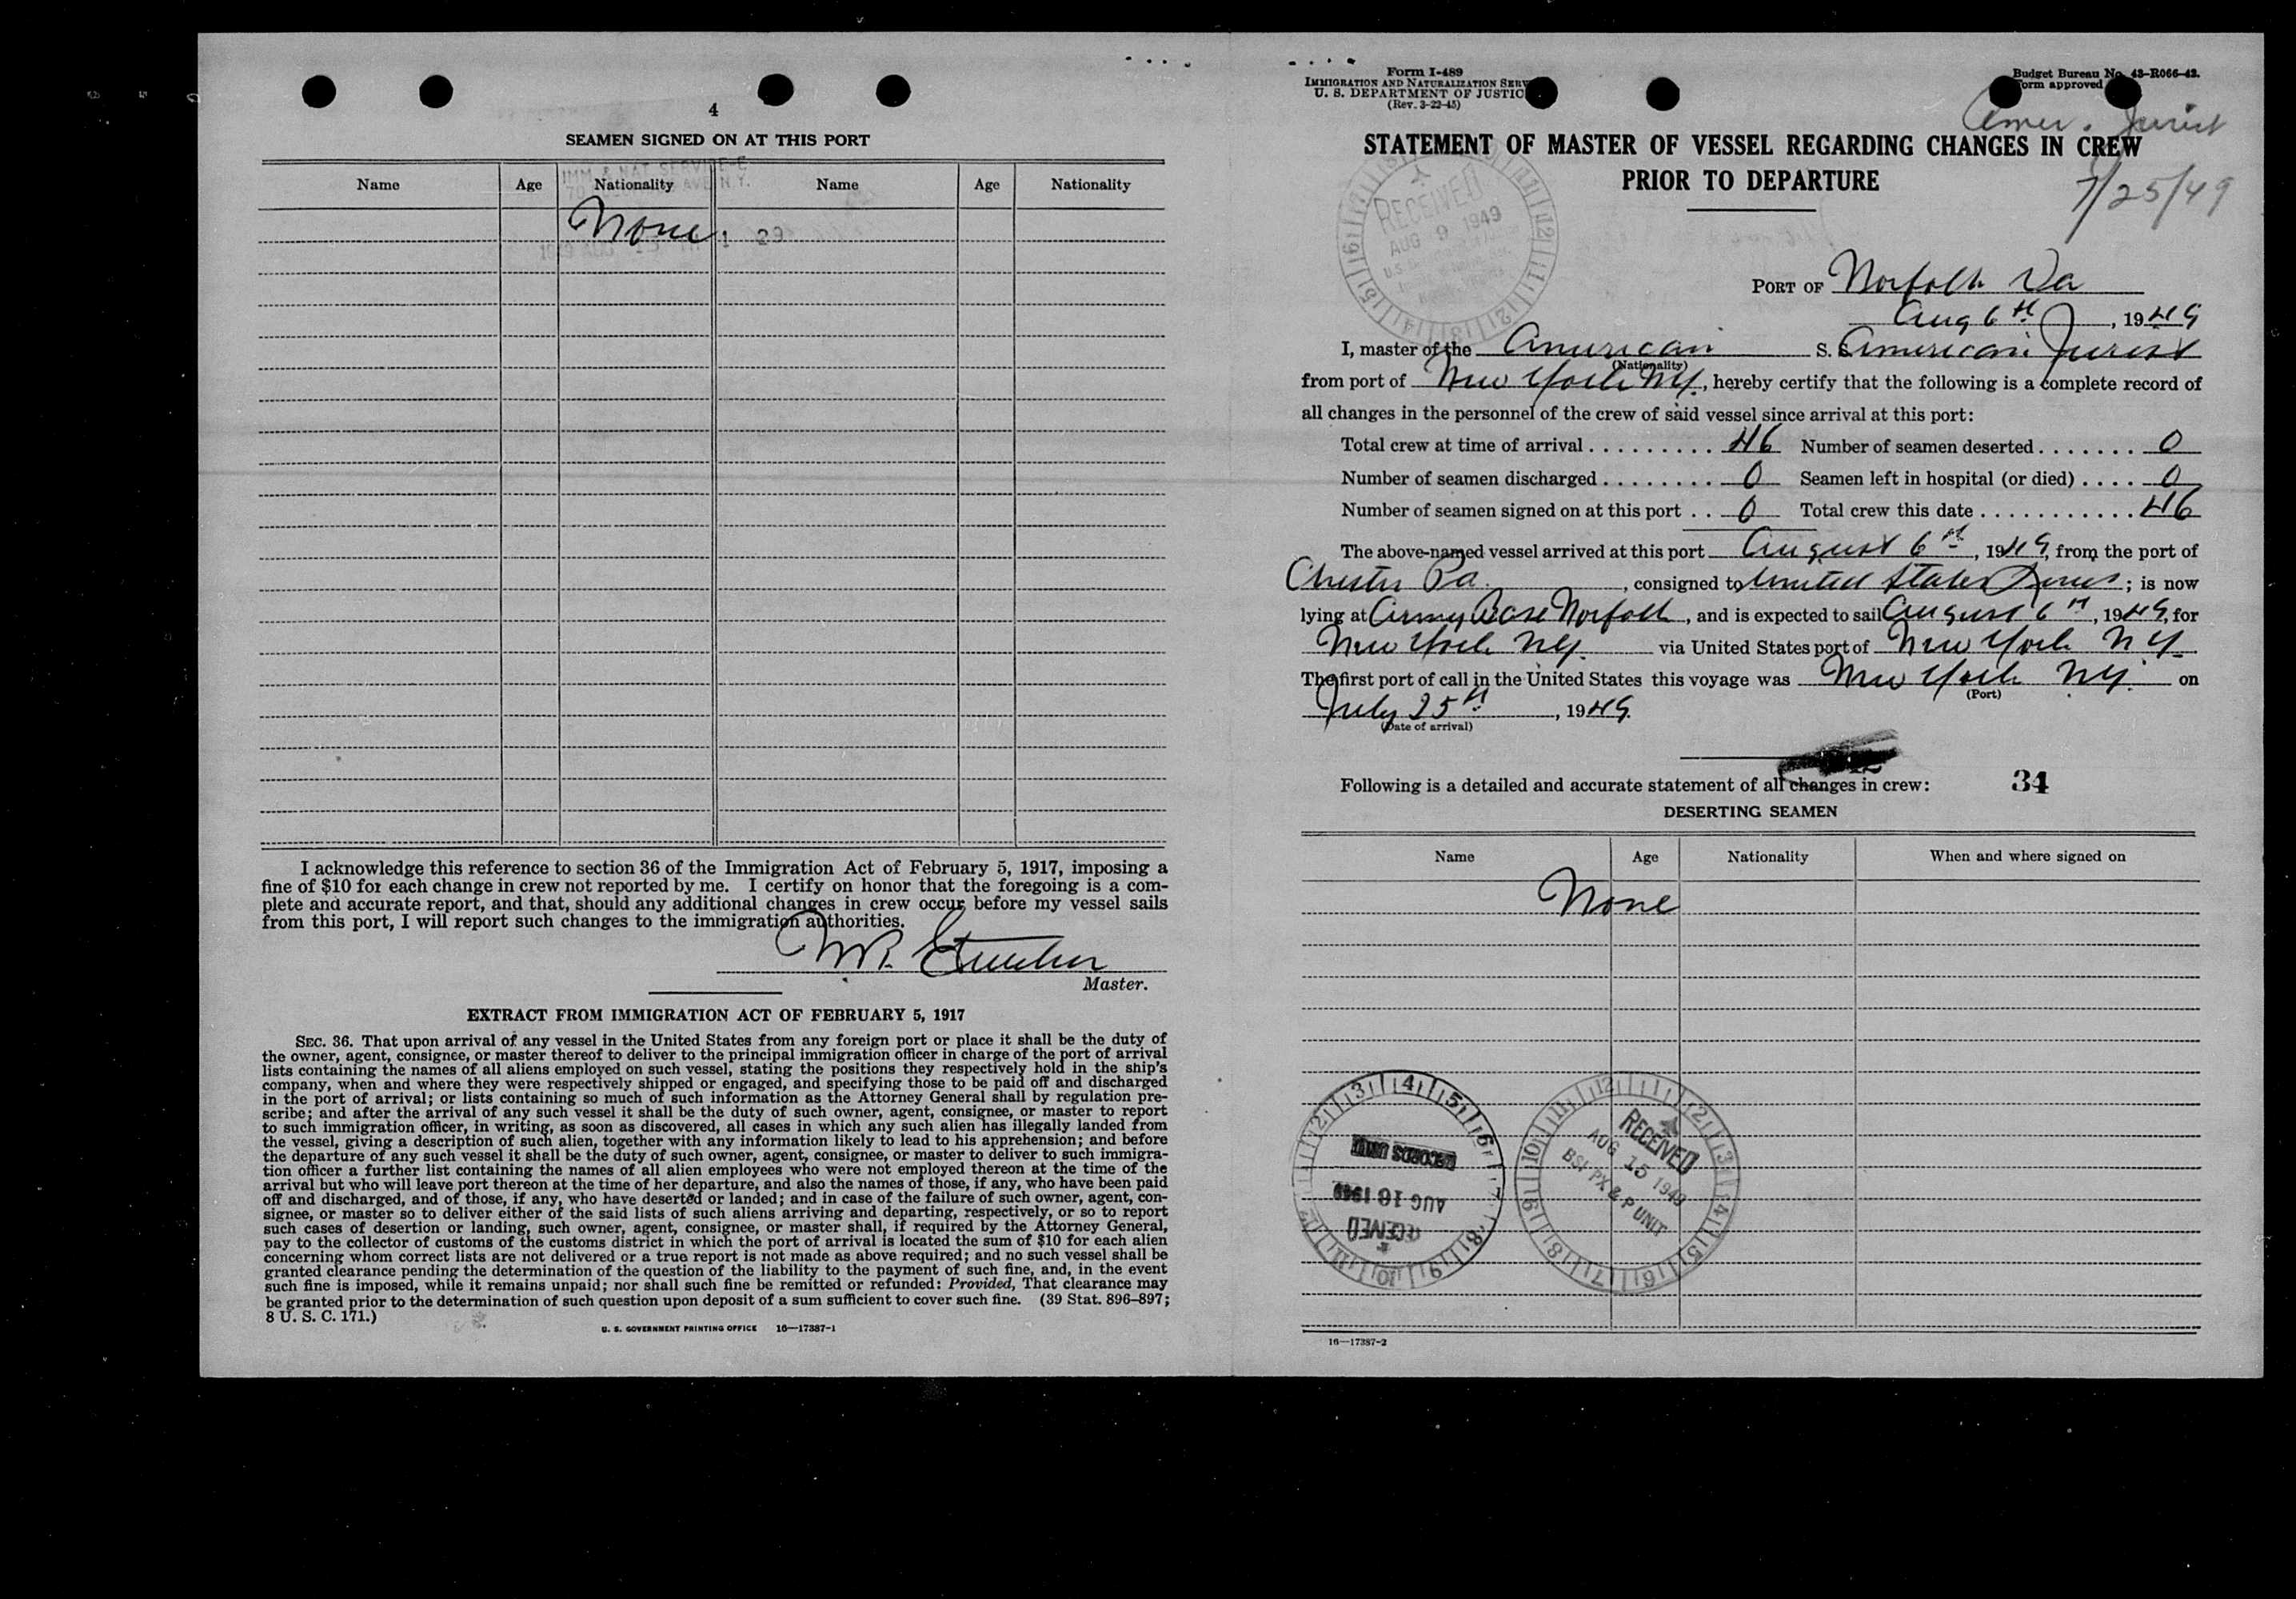 4
SEAMEN SIGNED ON AT THIS PORT
Name Age Nationality Name Age Nationality
IMM & NAT SERVICE-C
N.Y.
None
29
I acknowledge this reference to section 36 of the Immigration Act of February 5, 1917, imposing a
fine of $10 for each change in crew not reported by me. I certify on honor that the foregoing is a com-
plete and accurate report, and that, should any additional changes in crew occur before my vessel sails
from this port, I will report such changes to the immigration authorities.
Master.
EXTRACT FROM IMMIGRATION ACT OF FEBRUARY 5, 1917
SEC. 36. That upon arrival of any vessel in the United States from any foreign port or place it shall be the duty of
the owner, agent, consignee, or master thereof to deliver to the principal immigration officer in charge of the port of arrival
lists containing the names of all aliens employed on such vessel, stating the positions they respectively hold in the ship's
company, when and where they were respectively shipped or engaged, and specifying those to be paid off and discharged
in the port of arrival; or lists containing so much of such information as the Attorney General shall by regulation pre-
scribe; and after the arrival of any such vessel it shall be the duty of such owner, agent, consignee, or master to report
to such immigration officer, in writing, as soon as discovered, all cases in which any such alien has illegally landed from
the vessel, giving a description of such alien, together with any information likely to lead to his apprehension; and before
the departure of any such vessel it shall be the duty of such owner, agent, consignee, or master to deliver to such immigra-
tion officer a further list containing the names of all alien employees who were not employed thereon at the time of the
arrival but who will leave port thereon at the time of her departure, and also the names of those, if any, who have been paid
off and discharged, and of those, if any, who have deserted or landed; and in case of the failure of such owner, agent, con-
signee, or master so to deliver either of the said lists of such aliens arriving and departing, respectively, or so to report
such cases of desertion or landing, such owner, agent, consignee, or master shall, if required by the Attorney General,
pay to the collector of customs of the customs district in which the port of arrival is located the sum of $10 for each alien
concerning whom correct lists are not delivered or a true report is not made as above required; and no such vessel shall be
granted clearance pending the determination of the question of the liability to the payment of such fine, and, in the event
such fine is imposed, while it remains unpaid; nor shall such fine be remitted or refunded: Provided, That clearance may
be granted prior to the determination of such question upon deposit of a sum sufficient to cover such fine. (39 Stat. 896–897;
8 U. S. C. 171.)
U. S. GOVERNMENT PRINTING OFFICE 16—17387-1
Form I-489
IMMIGRATION AND NATURALIZATION SERV
U. S. DEPARTMENT OF JUSTIC
(Rev. 3-22-45)
Budget Bureau No. 43-R066-42.
Form approved
Amer. Jurist
7/25/49
STATEMENT OF MASTER OF VESSEL REGARDING CHANGES IN CREW
PRIOR TO DEPARTURE
RECEIVED
AUG 9 1949
PORT OF Norfolk Va
Aug 6th, 1949
I, master of the American S. S. American Jurist
(Nationality)
from port of New York NY., hereby certify that the following is a complete record of
all changes in the personnel of the crew of said vessel since arrival at this port:
Total crew at time of arrival 46 Number of seamen deserted 0
Number of seamen discharged 0 Seamen left in hospital (or died) 0
Number of seamen signed on at this port 0 Total crew this date 46
The above-named vessel arrived at this port August 6th, 1949, from the port of
Chester Pa., consigned to United States Lines; is now
lying at Army Base Norfolk, and is expected to sail August 6th, 1949, for
New York NY. via United States port of New York NY.
The first port of call in the United States this voyage was New York NY. on
(Port)
July 25th, 1949.
(Date of arrival)
Following is a detailed and accurate statement of all changes in crew: 34
DESERTING SEAMEN
Name Age Nationality When and where signed on
None
RECEIVED
AUG 16 1949
RECORDS UNIT
RECEIVED
AUG 15 1949
BSI PX & P UNIT
16—17387-2